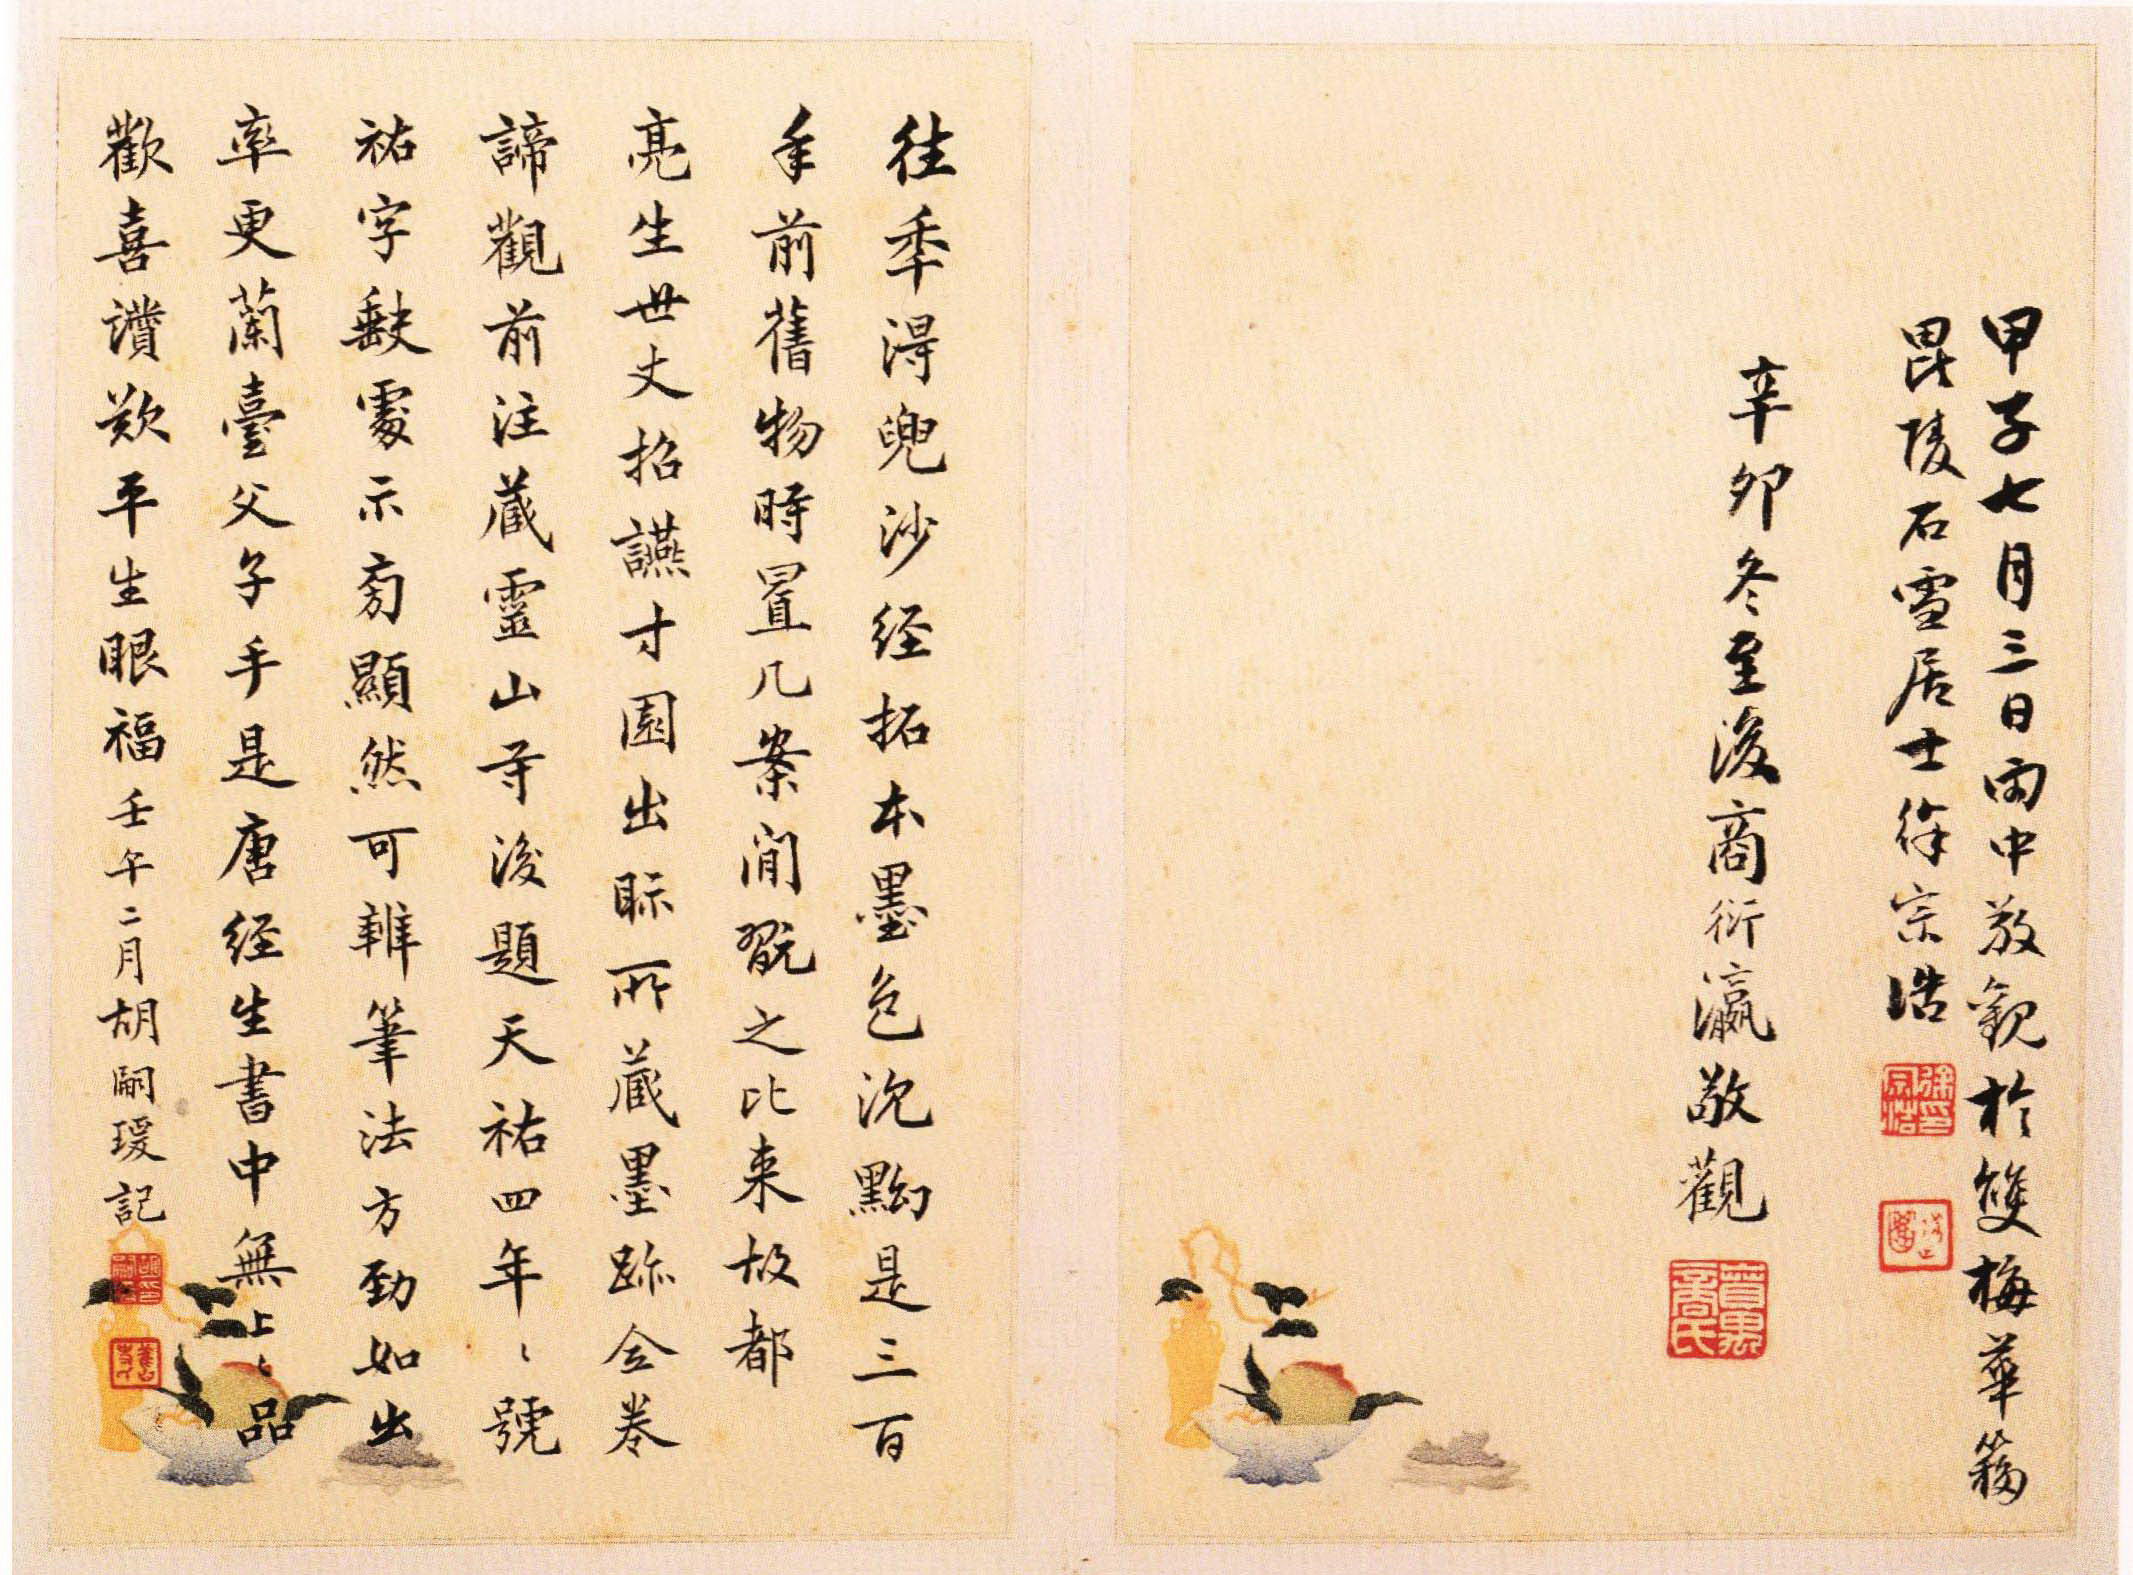 甲子七月三日雨中敬觀於雙梅華簃
毘陵石雪居士徐宗浩
辛卯冬至後商衍瀛敬觀
往秊淂兜沙经拓本墨色沈黝是三百
年前舊物時置几案閒翫之比来故都
亮生世丈招讌寸園出眎所蔵墨跡全卷
諦觀前注蔵靈山寺後題天祐四年〻號
祐字缺處示旁顯然可辨筆法方勁如出
率更蘭臺父子手是唐经生書中無上〻品
歡喜讚歎平生眼福壬午二月胡嗣瑗記